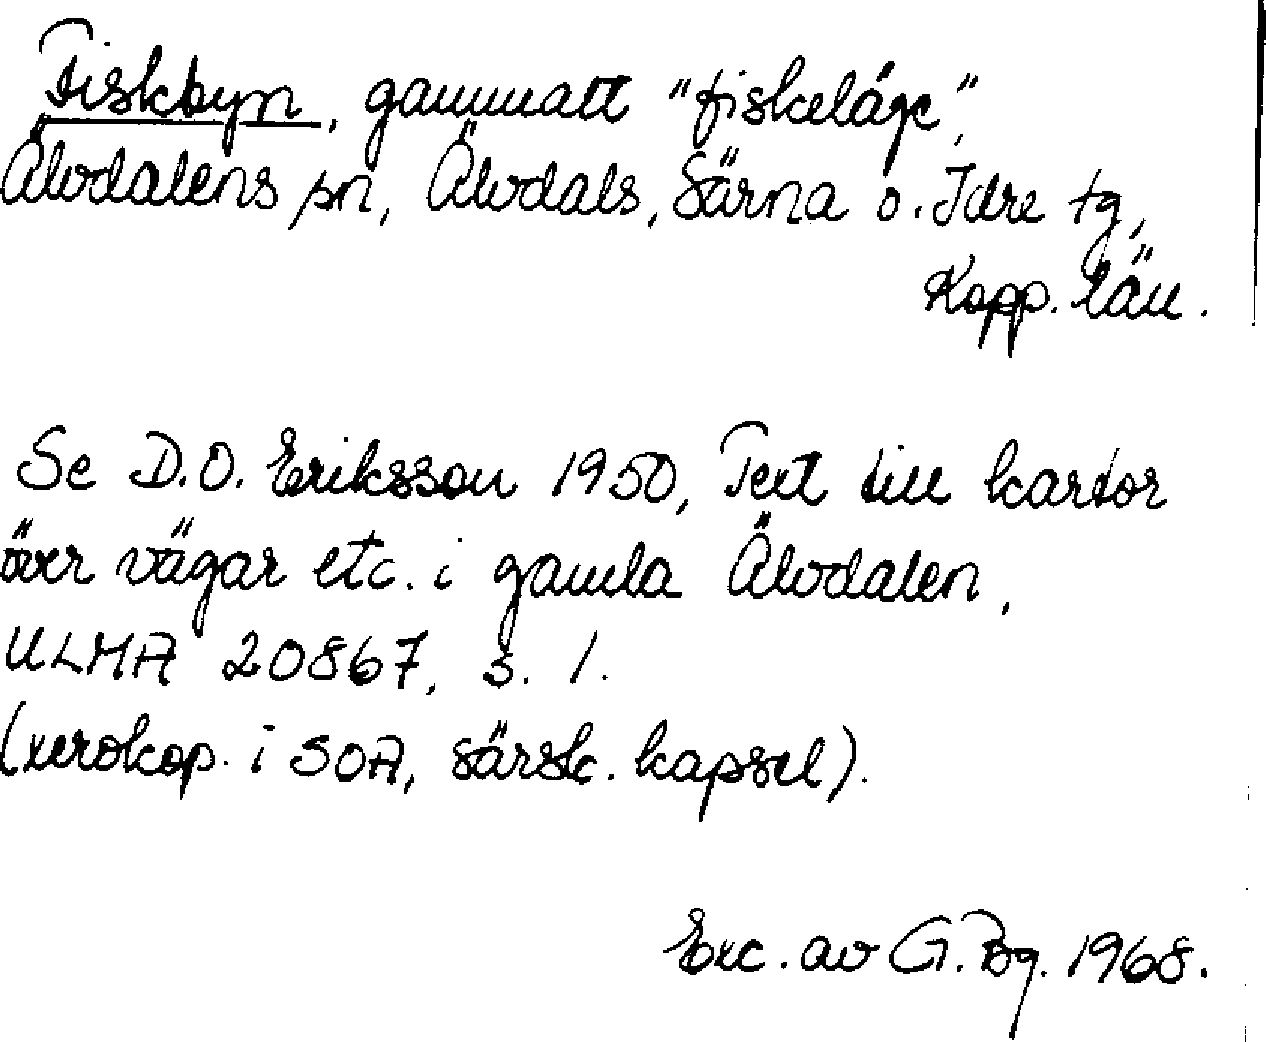 Fiskbyn, gammalt "fiskeläge",
Älvdalens sn, Älvdals, Särna o. Idre tg,
Kopp. län.
Se D.O. Eriksson 1950, Text till kartor
över vägar etc. i gamla Älvdalen,
ULMA 20867, s. 1.
(xerokop. i SOA, särsk. kapsel).
Exc. av G. Bg. 1968.